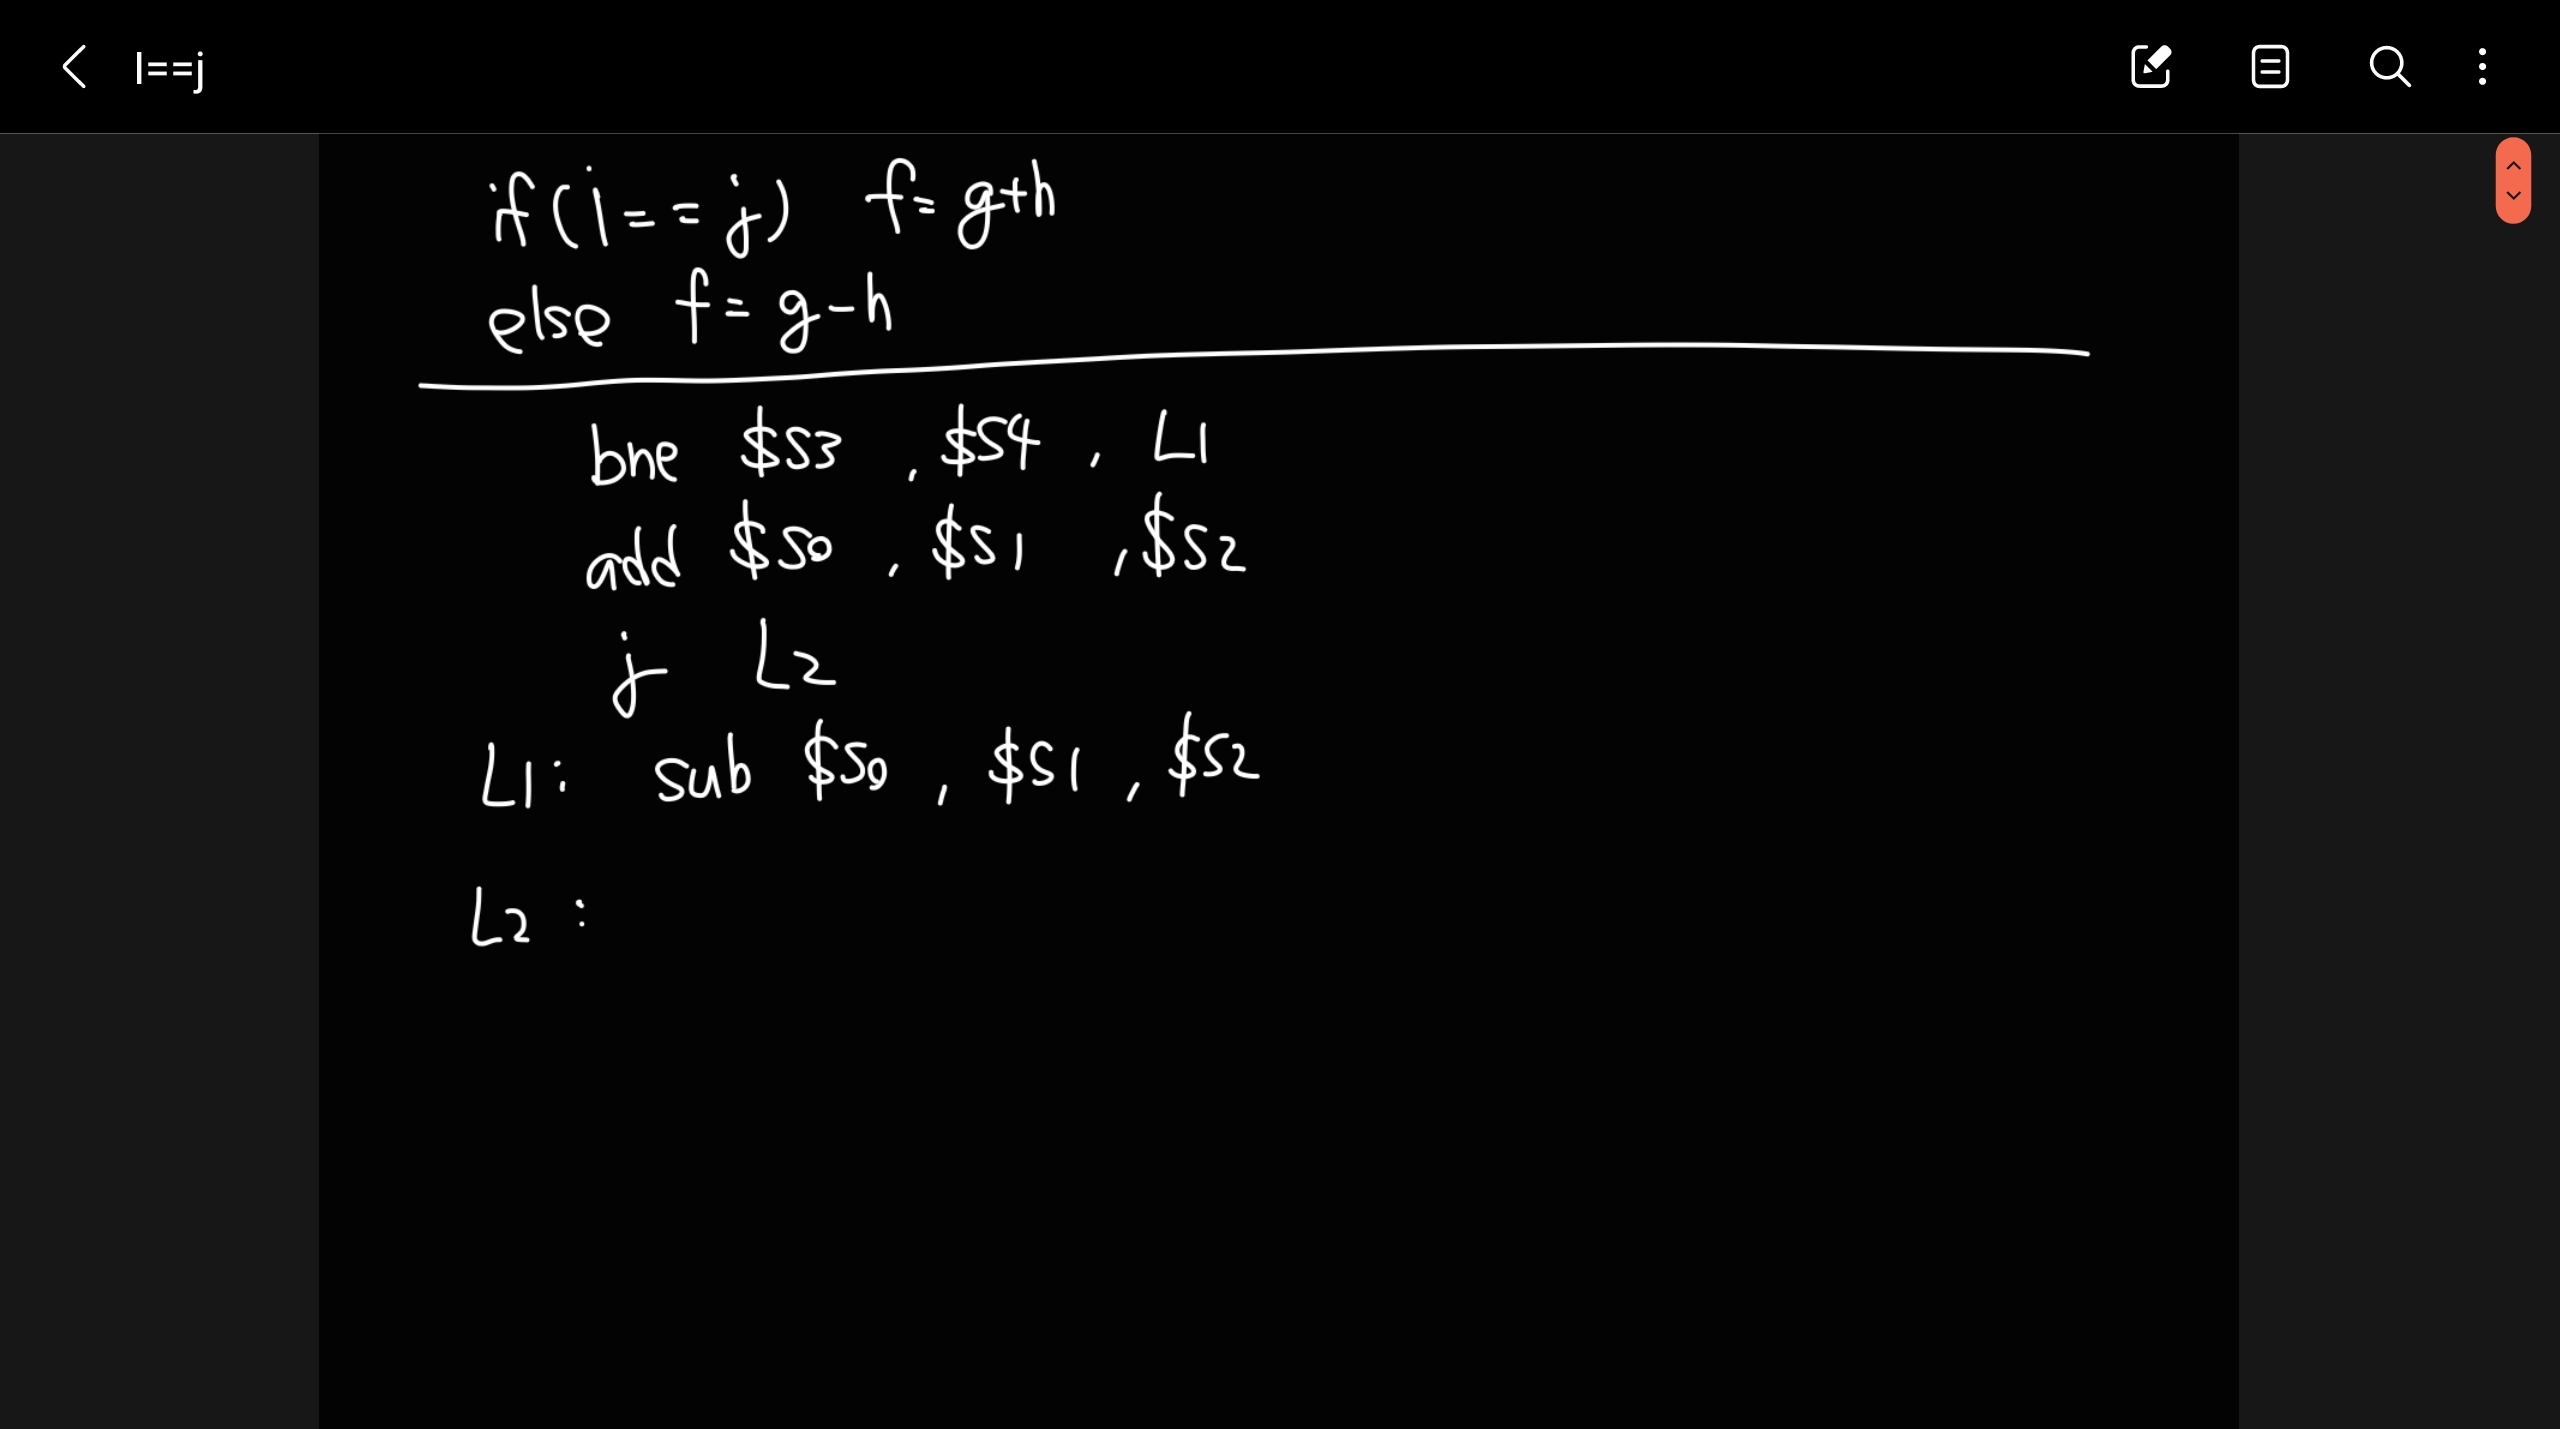 I==j
if(i==j) f=g+h
else f=g-h
bne $S3, $S4, L1
add $S0, $S1, $S2
j L2
L1: sub $S0, $S1, $S2
L2: